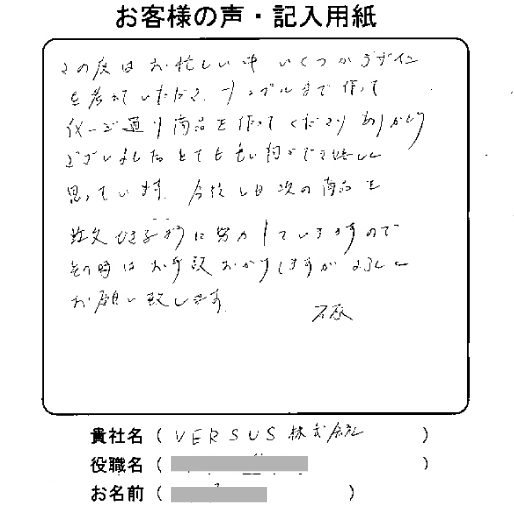 お客様の声・記入用紙
この度はお忙しい中 いくつかデザイン
を考えていただき、サンプルまで作って
イメージ通り商品を作ってくださりありがとう
ございましたとても良い物ができ嬉しく
思っています。今後も日次の商品を
注文できるように努力していきますので
その時はお手数おかけしますがよろしく
お願い致します。
貴社名（ VERSUS 株式会社 ）
役職名（ ）
お名前（ ）